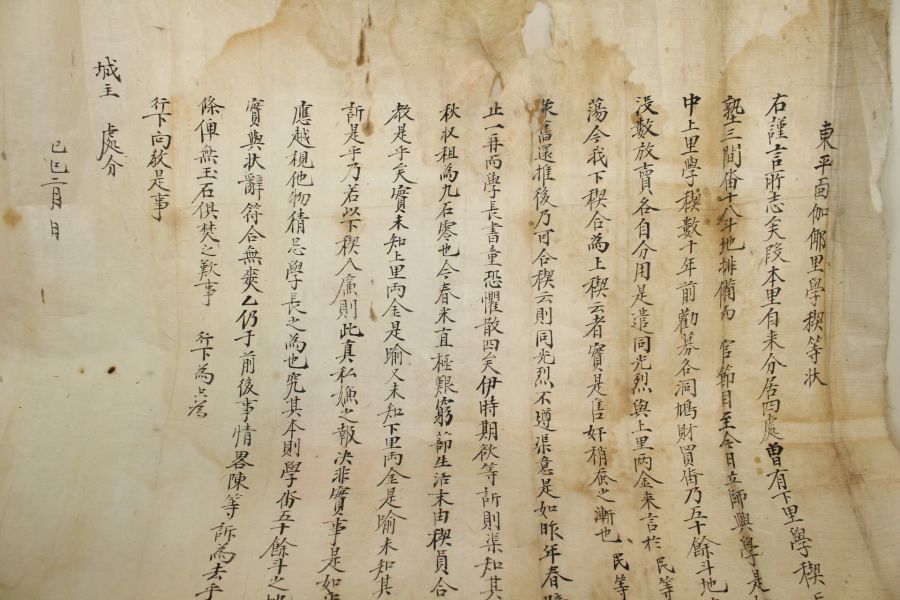 東平面伽倻里學稧等狀
右謹言所志矣段本里自來分居四處曾有下里學稧
塾三間畓十八斗地排備而 官節目至今日立師興學是
中上里學稧數十年前勸募各洞鳩財買畓乃五十餘斗地
沒數放賣各自分用是遣同光烈與上里兩金來言於民等
蕩今我下稧合為上稧云者實是售奸稍蚕之漸也 民等
還推後乃可合稧云則同光烈不遵渠意是如昨年春
止一再而學長書童恐懼散四矣伊時期欲等訴則渠知其
秋收租為九石零也今春米直極艱窮節生活末由稧員合
教是乎矣實未知上里兩金是喩又未知下里兩金是喩未知其
訴是乎乃若以下稧入廉則此真私嫌之報決非實事是如
應越視他物猜忌學長之為也究其本則學畓五十餘斗之
實與狀辭符合無爽乙仍于前後事情畧陳等訴為去乎
俾無玉石俱焚之歎事 行下為只為
行下向教是事
城主 處分
己巳二月 日